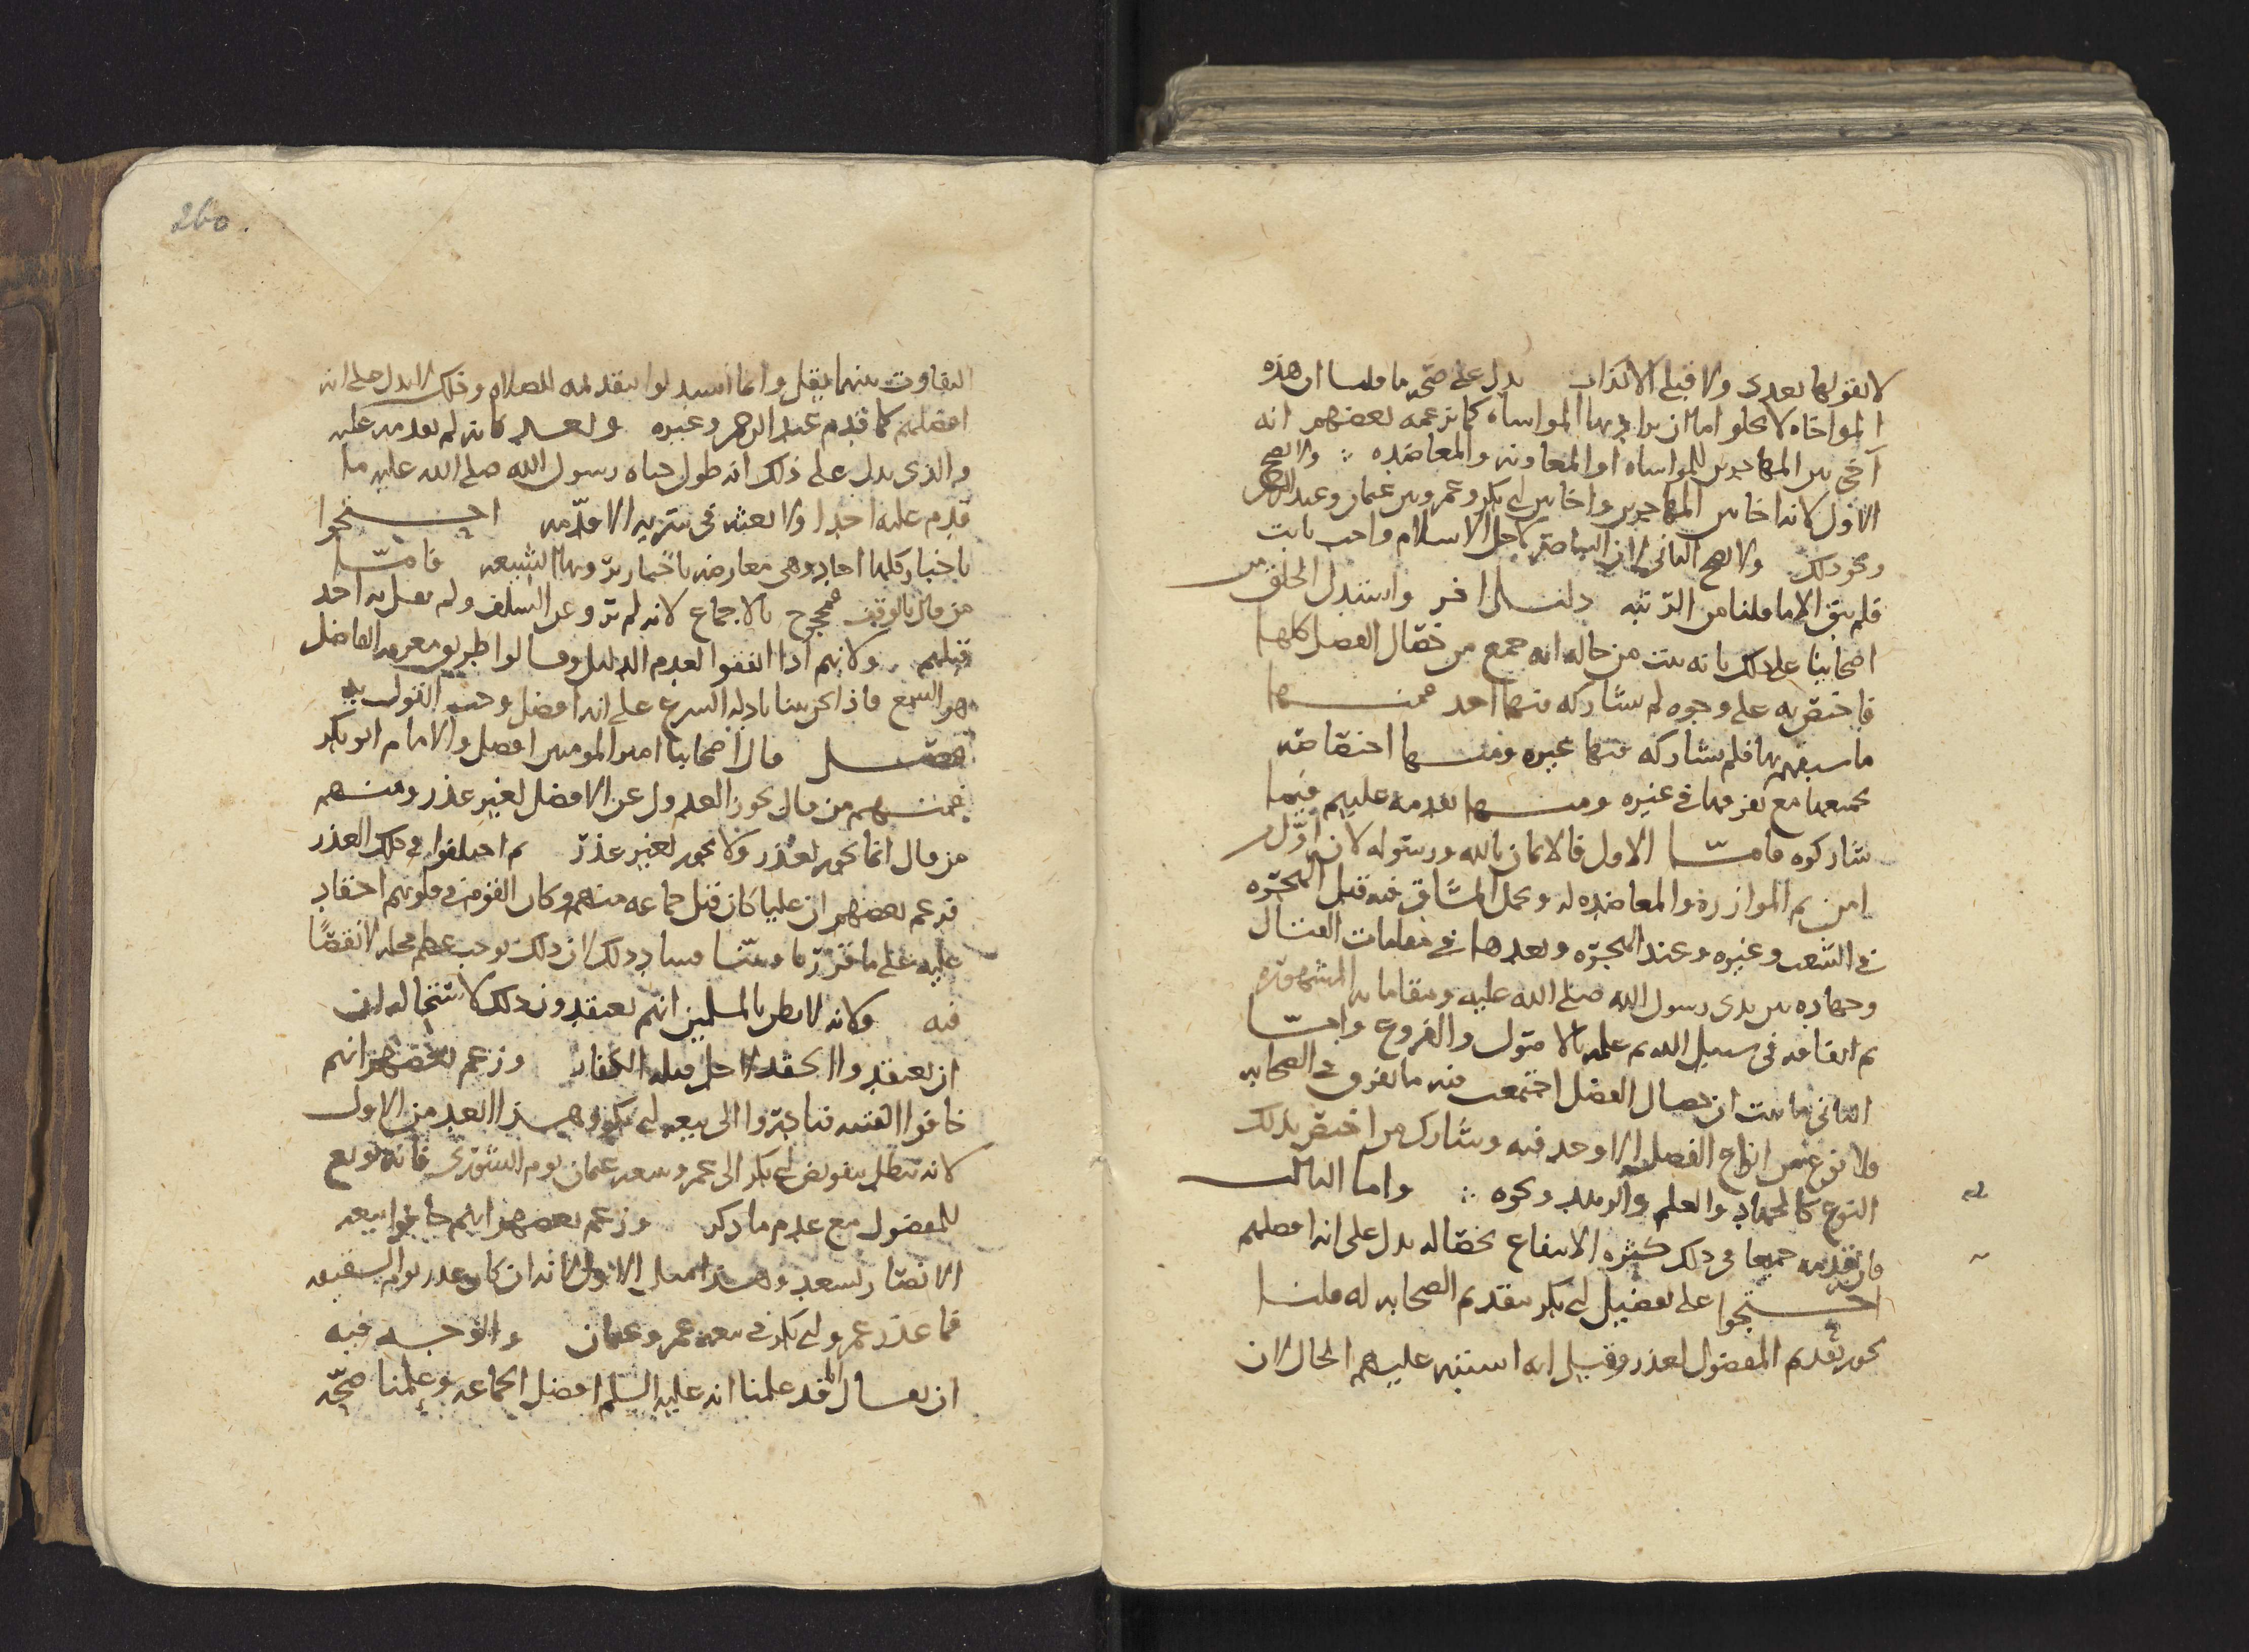 لا يقولها بعدي ولا قبلي الا كذاب يدل على صحة ما قلنا ان هذه
المواخاه لا يخلو اما ان يراد بها المواساه كما يزعمه بعضهم انه
آخى بين المهاجرين للمواساه او المعاونه والمعاضده ولا يصح
الاول لانه اخا بين المهاجرين واخا بين ابي بكر وعمر وبين عثمان وعبد الرحمن
ونحو ذلك ولا يصح الثاني لان المناصرة لاجل الاسلام واجب ثابت
فلم يبق الا ما قلنا من الرتبه دليل اخر واستدل الخلق من
اصحابنا على ذلك بانه يثبت من حاله انه جمع من خصال الفضل كلها
فاختص به على وجوه لم يشاركه فيها احد فمنها
ما سبقهم بها فلم يشاركه فيها غيره ومنها اختصاصه
بجميعها مع تفرقها في غيره ومنها تقدمه عليهم فيما
شاركوه فامّا الاول فالايمان بالله ورسوله لانه اوّل من
امن ثم الموازرة والمعاضده له وتحمل المشاق فيه قبل الهجره
في الشعب وغيره وعند الهجره وبعدها في مقامات القتال
وجهاده بين يدي رسول الله صلى الله عليه ومقاماته المشهوره
ثم انفاقه في سبيل الله ثم علمه بالاصول والفروع وامّا
الثاني فاثبت ان خصال الفضل اجتمعت فيه ما تفرق في الصحابه
ولا نوع من انواع الفضل الا وجد فيه وشارك من اختص بذلك
النوع كالجهاد والعلم والزهد ونحوه واما الثالث
فان تقدمه جميعا في ذلك كثره الانتفاع بخصاله يدل على انه افضلهم
احتجوا على تفضيل ابي بكر بتقديم الصحابه له قلنا
يجوز تقديم المفضول لعذر وقيل انه اشتبه عليهم الحال لان
260
التفاوت بينهما يقل وانما استدلوا بتقديمه للصلاه وذلك لا يدل على انه
افضلهم كما قدم عبد الرحمن وغيره وبعد فانه لم يقدمه عليه
والذي يدل على ذلك انه طول حياه رسول الله صلى الله عليه ما
قدم عليه احدا ولا بعثه في سريه الا قدّمه احتجوا
باخبار كلها احاد وهي معارضه باخبار يرويها الشيعه فامّا
من قال بالوقف فمحجوج بالاجماع لانه لم يرو عن السلف ولم يقل به احد
قبلهم ولانهم اذا اتفقوا لعدم الدليل وقالوا طريق معرفه الفاضل
هو السمع فاذا تحرينا بادله الشرع على انه افضل وجب القول به
فصل قال اصحابنا امير المومنين افضل والامام ابو بكر
فمنهم من قال يجوز العدول عن الافضل لغير عذر ومنهم
من قال انما يجوز لعذر ولا يجوز لغير عذر ثم اختلفوا في ذلك العذر
فزعم بعضهم ان عليا كان قتل جماعه منهم وكان القوم في قلوبهم احقاد
عليه على ما قررنا وبيّنا فساد ذلك لان ذلك يوجب عظم محله لا نقصًا
فيه ولانه لا يظن بالمسلمين انهم يعتقدون ذلك لاستحاله
ان يعتقدوا الحقد لاجل قتله الكفار وزعم بعضهم انهم
خافوا الفتنه فبادروا الى بيعه ابي بكر وهذا ابعد من الاول
لانه يبطل بتفويض ابي بكر الى عمر وبيعه عثمان يوم الشورى فانه بويع
للمفضول مع عدم ما ذكر وزعم بعضهم انهم خافوا بيعه
الانصار لسعد وهذا مثل الاول لانه ان كان عذر يوم السقيفه
فما عذر عمر وابي بكر في بيعه عمر وعثمان والوجه فيه
ان يقال قد علمنا انه عليه السلم افضل الجماعه وعلمنا صحّه